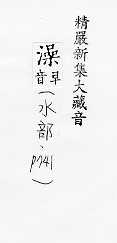 精嚴新集大藏音
澡早音(水部、p741)